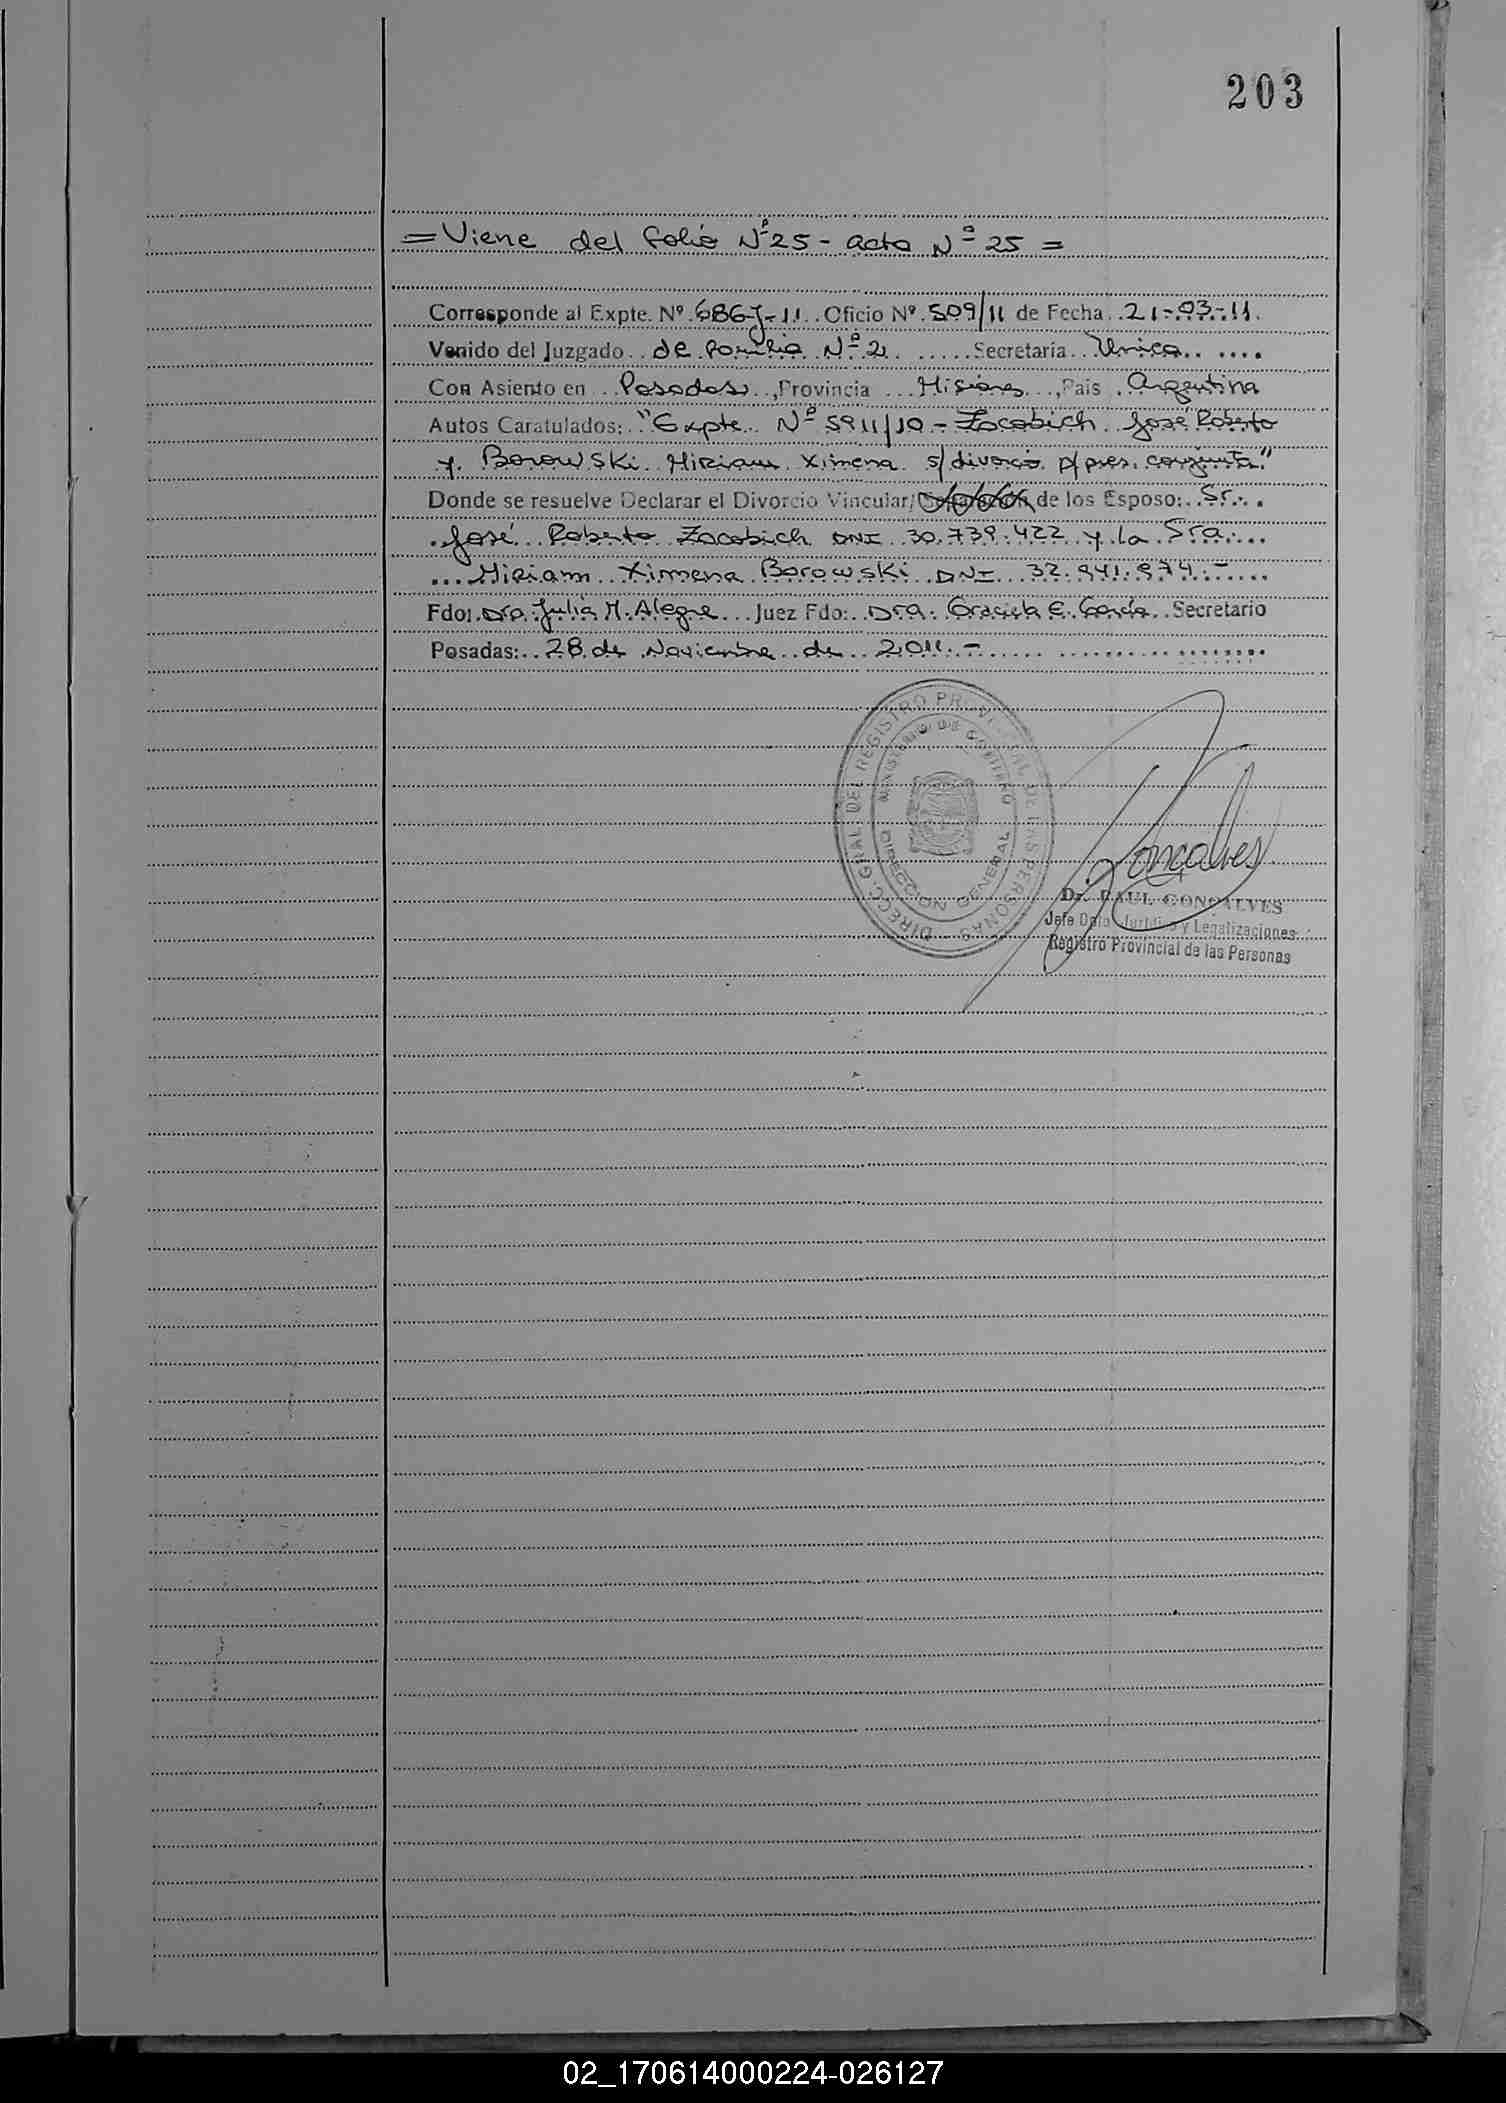 203
= Viene del folio Nº 25 - acta Nº 25 =
Corresponde al Expte. Nº 686-J-11 Oficio Nº 509/11 de Fecha 21-03-11
Venido del Juzgado de Familia Nº 2 Secretaría Unica
Con Asiento en Posadas, Provincia Misiones, País Argentina
Autos Caratulados: "Expte. Nº 5911/10 - Zacobich José Roberto
y Borowski Miriam Ximena s/divorcio p/pres. conjunta"
Donde se resuelve Declarar el Divorcio Vincular/ de los Esposo: Sr.
José Roberto Zacobich DNI 30.739.422 y la Sra.
Miriam Ximena Borowski DNI 32.941.974.-
Fdo: Dra. Julia M. Alegre Juez Fdo: Dra. Graciela E. García Secretario
Posadas: 28 de Noviembre de 2011.-
DIRECC. GRAL. DEL REGISTRO PROVINCIAL DE LAS PERSONAS
MINISTERIO DE GOBIERNO
DIRECCION GENERAL
Gonçalves
Dr. RAUL GONÇALVES
Jefe Dpto. Jurídico y Legalizaciones
Registro Provincial de las Personas
02_170614000224-026127